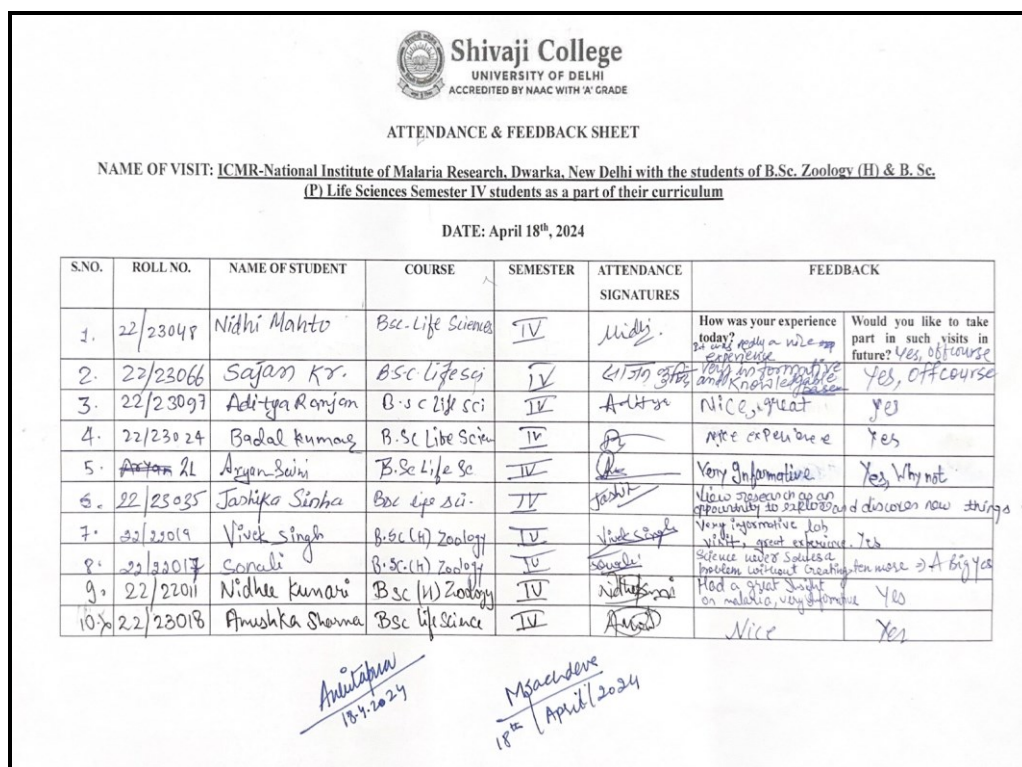 Shivaji College
UNIVERSITY OF DELHI
ACCREDITED BY NAAC WITH 'A' GRADE
ATTENDANCE & FEEDBACK SHEET
NAME OF VISIT: ICMR-National Institute of Malaria Research, Dwarka, New Delhi with the students of B.Sc. Zoology (H) & B. Sc.
(P) Life Sciences Semester IV students as a part of their curriculum
DATE: April 18th, 2024
S.NO. ROLL NO. NAME OF STUDENT COURSE SEMESTER ATTENDANCE SIGNATURES FEEDBACK
How was your experience today? Would you like to take part in such visits in future?
1. 22/23048 Nidhi Mahto Bsc. Life Sciences IV Nidhi It was really a nice experience Yes, offcourse
2. 22/23066 Sajan Kr. B.Sc. Life sci IV Very informative and Knowledgable Yes, Offcourse
3. 22/23097 Aditya Ranjan B.sc Life sci IV Aditya Nice, great Yes
4. 22/23024 Badal Kumar B.Sc Life Scien IV Nice experience Yes
5. 22 Aryan Saini B.Sc Life Sc IV Very Informative Yes, Why not
6. 22/23035 Jashika Sinha Bsc life sci. IV Jashik View research as an oppourtunity to explore and discover new things
7. 22/22019 Vivek Singh B.Sc (H) Zoology IV Vivek Singh Very informative lab visit, great experience. Yes
8. 22/22017 Sonali B.Sc. (H) Zoology IV Sonali Science never solves a problem without creating ten more => A Big yes
9. 22/22011 Nidhee Kumari B sc (H) Zoology IV Had a great insight on malaria, very informative Yes
10. 22/23018 Anushka Sharma BSc life Science IV Nice Yes
18.4.2024
18th April/2024